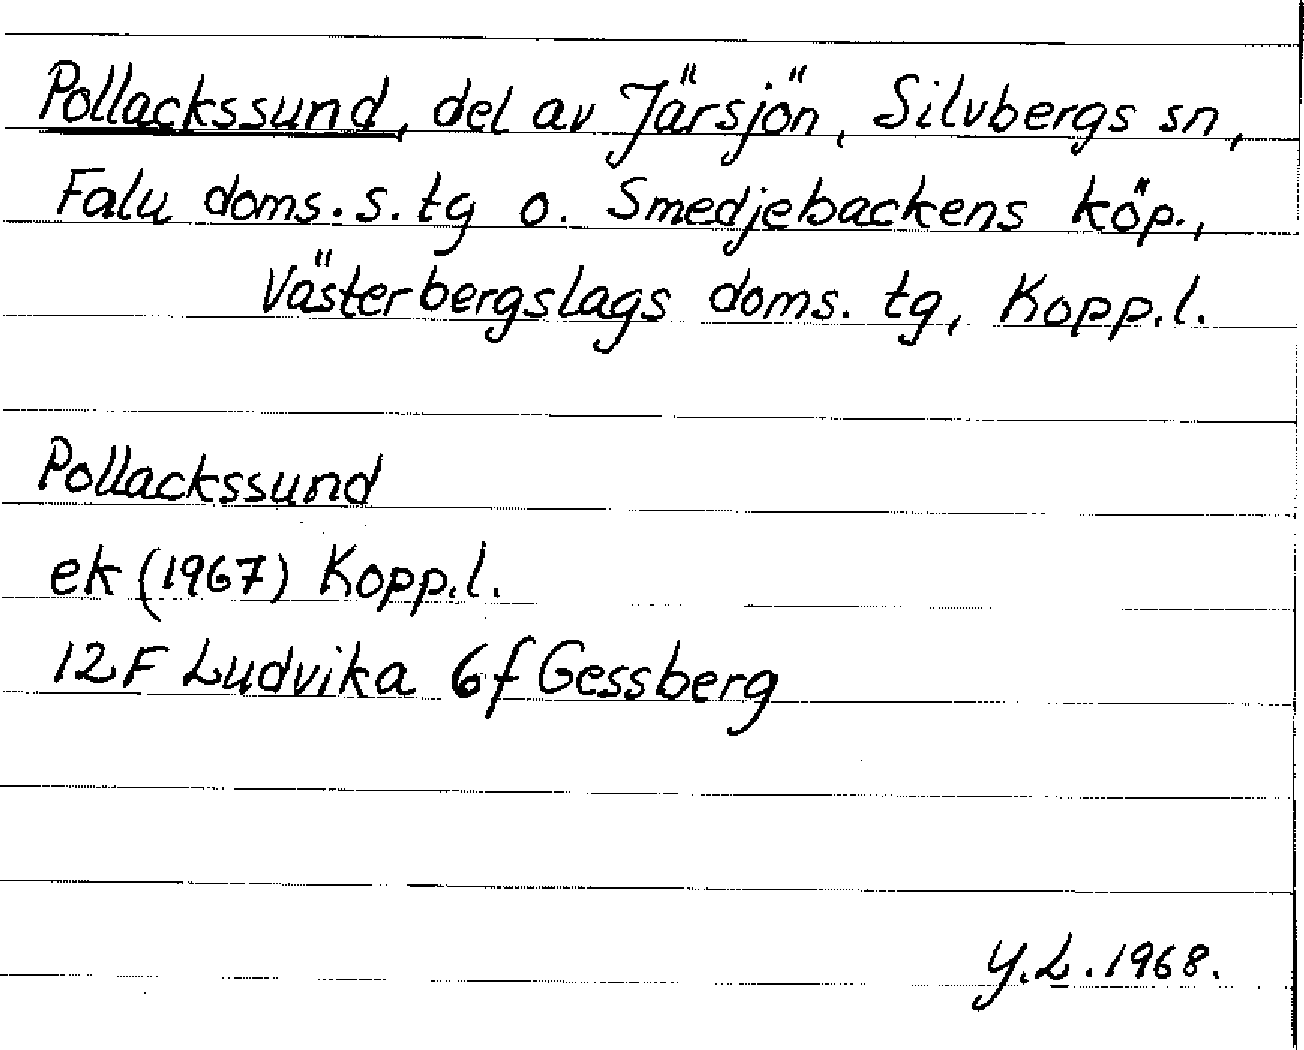 Pollackssund, del av Järsjön, Silvbergs sn,
Falu doms. s. tg o. Smedjebackens köp.,
Västerbergslags doms. tg, Kopp. l.
Pollackssund
ek (1967) Kopp. l.
12F Ludvika 6f Gessberg
Y. L. 1968.